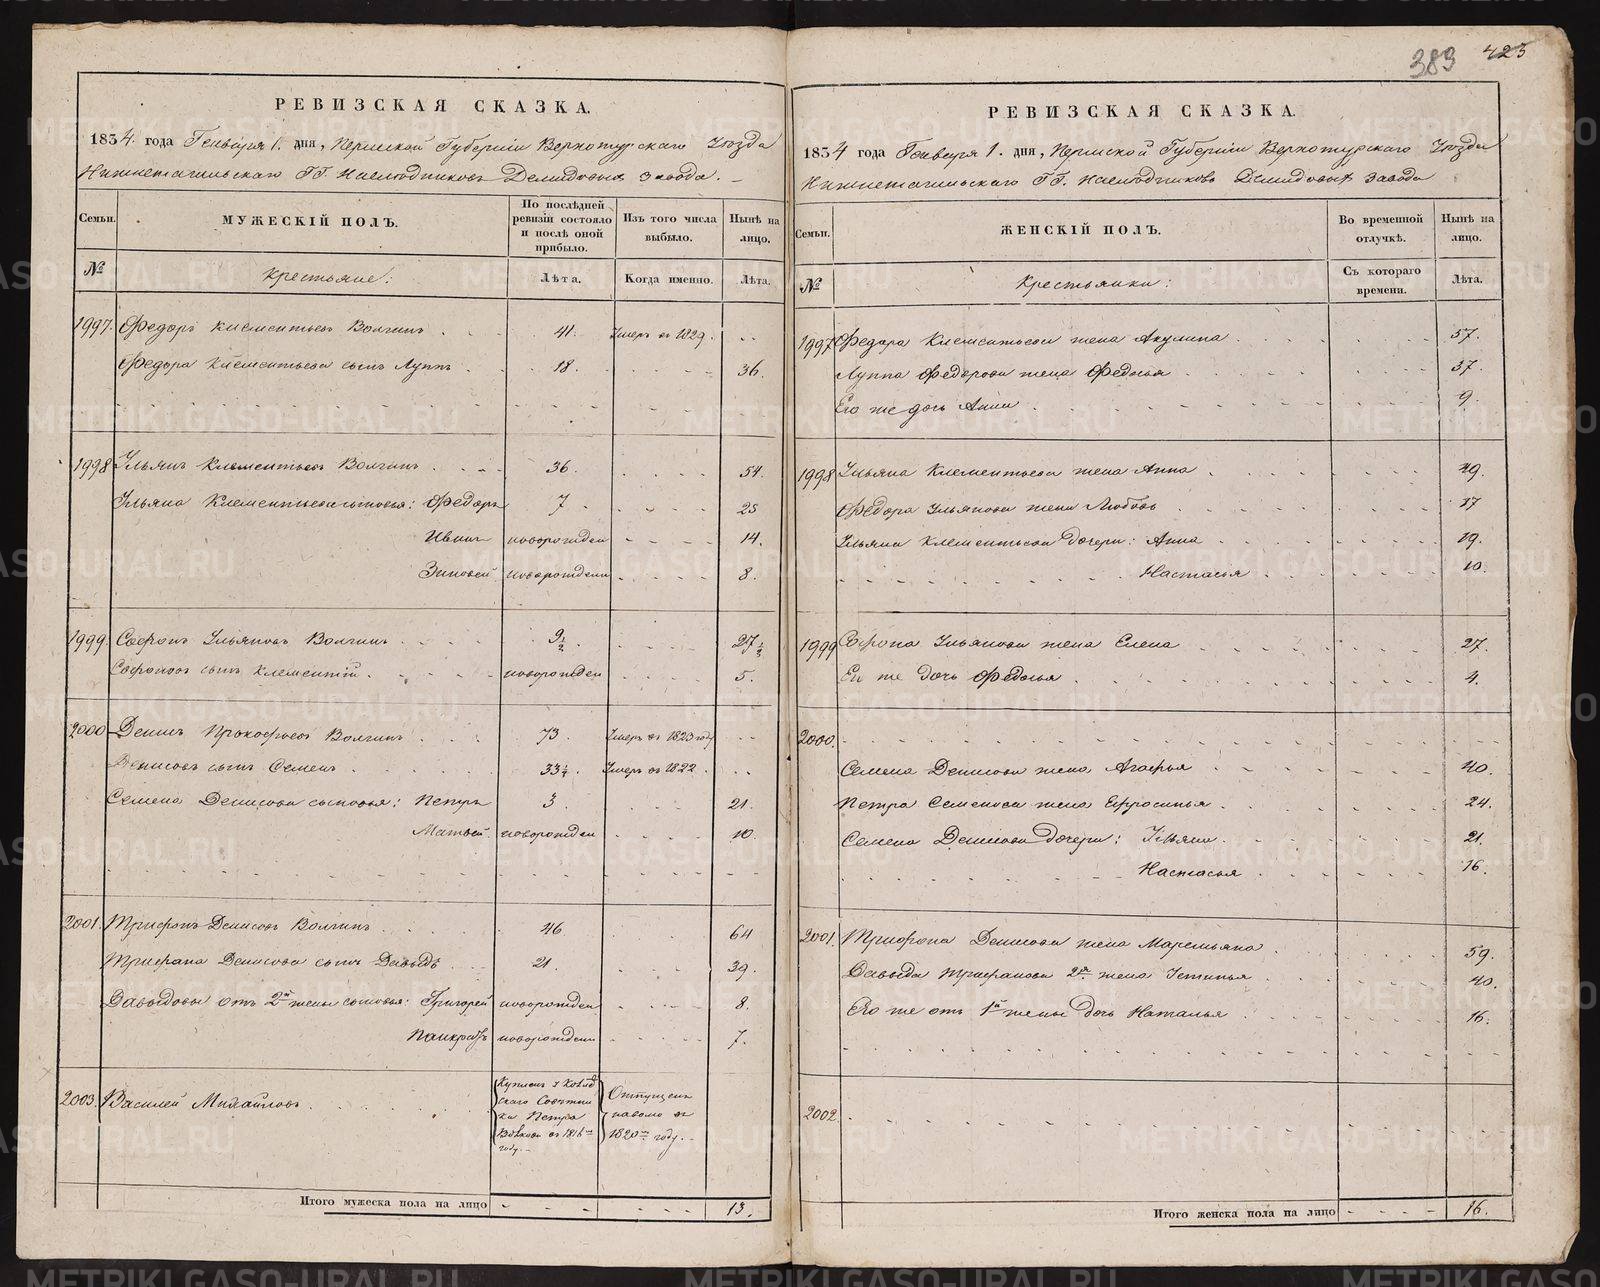 389 423
РЕВИЗСКАЯ СКАЗКА.
1834 года Генваря 1. дня, Пермской Губернии Верхотурскаго Уѣзда
Нижнетагильскаго ГГ. Наслѣдниковъ Демидовыхъ завода.
Семьи.
МУЖЕСКІЙ ПОЛЪ.
По послѣдней ревизіи состояло и послѣ оной прибыло.
Изъ того числа выбыло.
Нынѣ на лицо.
№ Крестьяне: Лѣта. Когда именно. Лѣта.
1997. Федоръ Клементьевъ Волгинъ 41. Умеръ въ 1829.
Федора Клементьева сынъ Луппъ 18. 36.
1998 Ульянъ Клементьевъ Волгинъ 36. 54.
Ульяна Клементьева сыновья: Федоръ 7 25
Иванъ новорожден 14.
Зиновей новорожден 8.
1999. Софонъ Ульяновъ Волгинъ 9½ 27½
Софоновъ сынъ Клементій новорожден 5.
2000 Денисъ Прокофьевъ Волгинъ 73. Умеръ въ 1823 году
Денисовъ сынъ Семенъ 33¼. Умеръ въ 1822.
Семена Денисова сыновья: Петръ 3. 21.
Матвей новорожден 10.
2001. Трифонъ Денисовъ Волгинъ 46 64
Трифона Денисова сынъ Давыдъ 21. 39.
Давыдовы отъ 2й жены сыновья: Григорей новорожден 8.
Панкратъ новорожден 7.
2003. Василей Михайловъ
Купленъ у
Петра
въ 1816м году.
Отпущенъ
на волю въ
1820м году.
Итого мужеска пола на лицо 13.
РЕВИЗСКАЯ СКАЗКА.
1834 года Генваря 1. дня, Пермской Губерніи Верхотурскаго Уѣзда
Нижнетагильскаго ГГ. Наслѣдниковъ Демидовыхъ завода
Семьи.
ЖЕНСКІЙ ПОЛЪ.
Во временной отлучкѣ.
Нынѣ на лицо.
№ Крестьянки: Съ котораго времени. Лѣта.
1997 Федора Клементьева жена Акулина 57.
Луппа Федорова жена Федосья 37.
Его же дочь Анна 9.
1998 Ульяна Клементьева жена Анна 49.
Федора Ульянова жена Любовь 17
Ульяна Клементьева дочери: Анна 19.
Настасья 10.
1999 Софона Ульянова жена Елена 27.
Ея же дочь Федосья 4.
2000.
Семена Денисова жена Агафья 40.
Петра Семенова жена Ефросинья 24.
Семена Денисова дочери: Ульяна 21.
Настасья 16.
2001. Трифона Денисова жена Маремьяна 59.
Давыда Трифонова 2я жена Устинья 40.
Его же отъ 1й жены дочь Наталья 16.
2002.
Итого женска пола на лицо 16.
METRIKI.GASO-URAL.RU